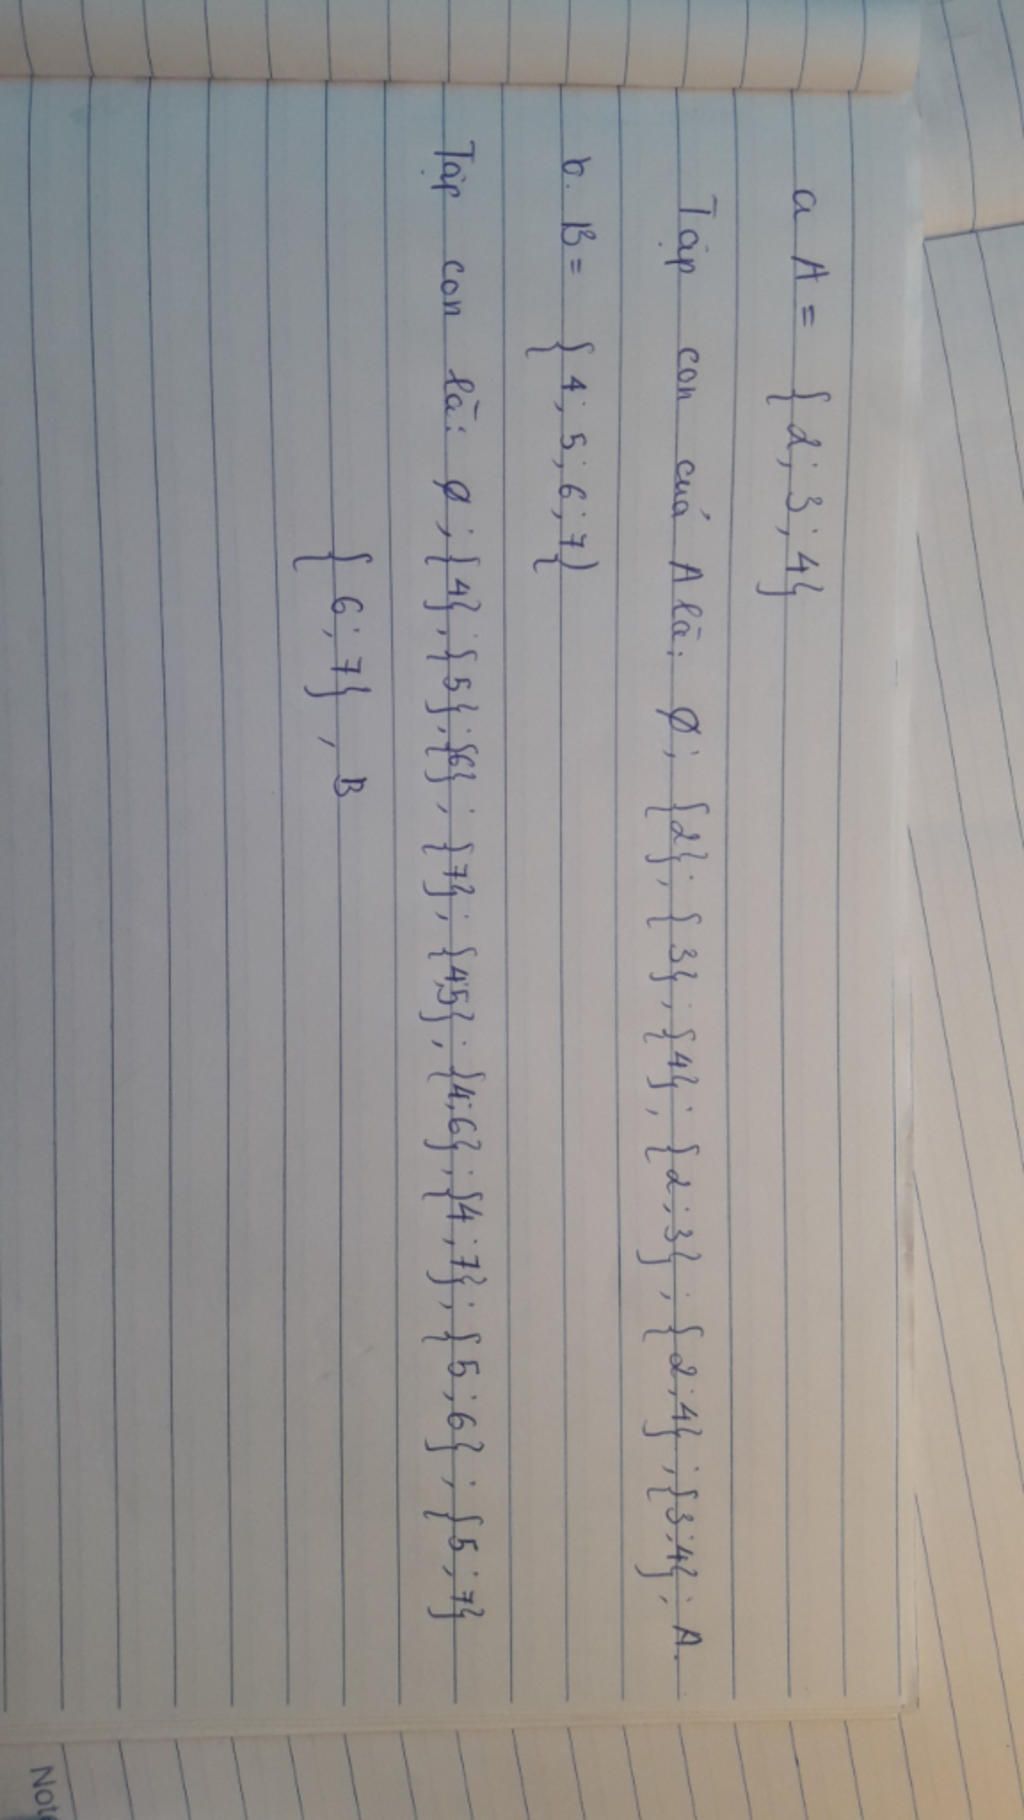 a A = {2; 3; 4}
Tập con củả A là: ∅; {2}; {3}; {4}; {2; 3}; {2; 4}; {3; 4}; A.
b. B = {4; 5; 6; 7}
Tập con là: ∅; {4}; {5}; {6}; {7}; {4;5}; {4;6}; {4; 7}; {5; 6}; {5; 7}
{6; 7}, B
Note